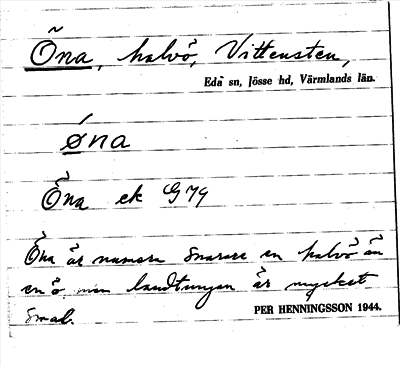 Öna, halvö, Vittensten,
Eda sn, Jösse hd, Värmlands län.
ǿna
Öna ek G 79
Öna är numera snarare en halvö än
en ö, men landtungan är mycket
smal.
PER HENNINGSSON 1944.